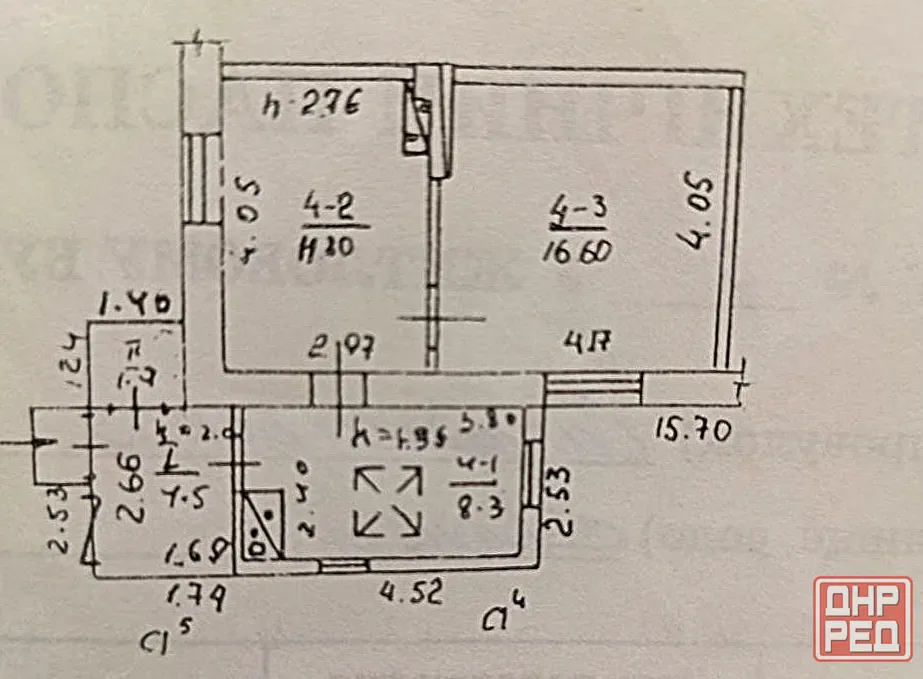 h-2.76
4.05
4-2
11.80
4-3
16.60
4.05
1.40
1.24
2.97
4.17
15.70
3.80
I
4.5
2.66
2.53
2.40
4-1
8.3
2.53
1.68
1.79
4.52
а⁵
а⁴
ДНР
РЕД